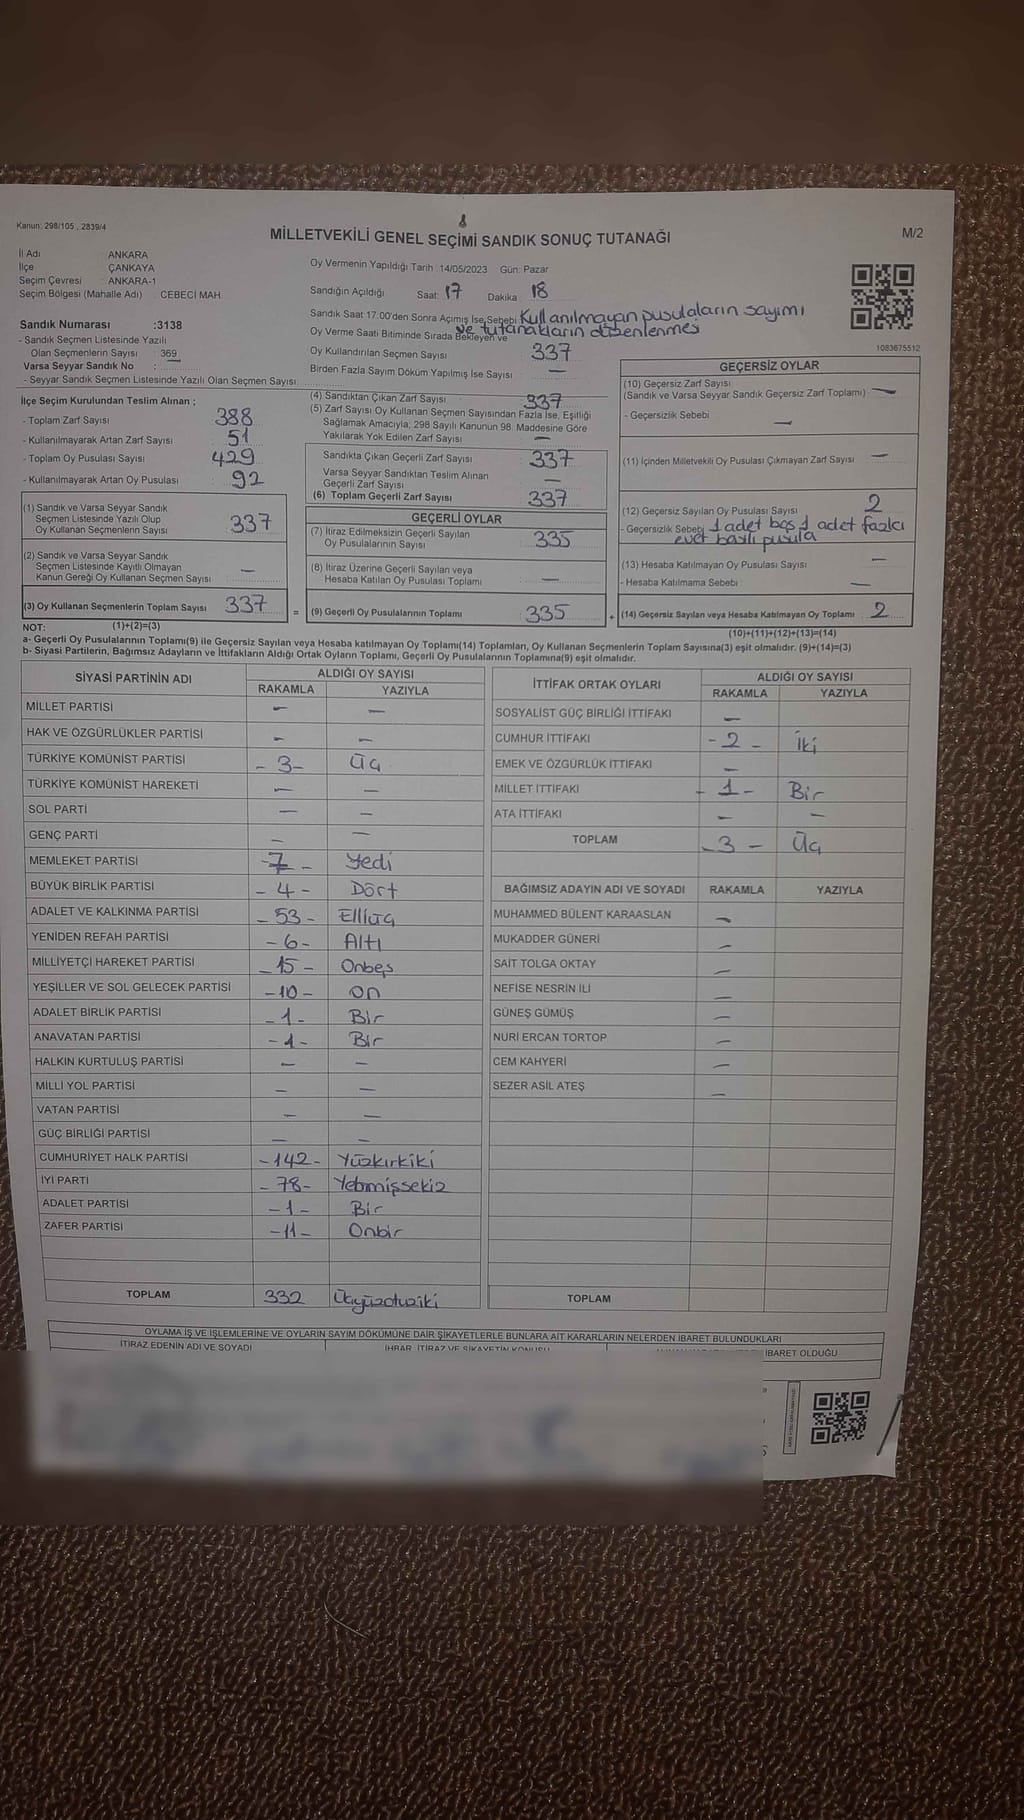 Kanun: 298/105 , 2839/4
MİLLETVEKİLİ GENEL SEÇİMİ SANDIK SONUÇ TUTANAĞI
M/2
İl Adı ANKARA
İlçe ÇANKAYA
Seçim Çevresi ANKARA-1
Seçim Bölgesi (Mahalle Adı) : CEBECİ MAH.
Sandık Numarası :3138
- Sandık Seçmen Listesinde Yazılı
Olan Seçmenlerin Sayısı : 369
Varsa Seyyar Sandık No : —
- Seyyar Sandık Seçmen Listesinde Yazılı Olan Seçmen Sayısı:
Oy Vermenin Yapıldığı Tarih 14/05/2023 Gün: Pazar
Sandığın Açıldığı Saat: 17 Dakika 18
Sandık Saat 17:00'den Sonra Açımış İse Sebebi Kullanılmayan pusulaların sayımı
ve tutanakların düzenlenmesi
Oy Verme Saati Bitiminde Sırada Bekleyen ve
Oy Kullandırılan Seçmen Sayısı 337
Birden Fazla Sayım Döküm Yapılmış İse Sayısı —
1083675512
İlçe Seçim Kurulundan Teslim Alınan ;
- Toplam Zarf Sayısı 388
- Kullanılmayarak Artan Zarf Sayısı 51
- Toplam Oy Pusulası Sayısı 429
- Kullanılmayarak Artan Oy Pusulası 92
(1) Sandık ve Varsa Seyyar Sandık
Seçmen Listesinde Yazılı Olup
Oy Kullanan Seçmenlerin Sayısı 337
(2) Sandık ve Varsa Seyyar Sandık
Seçmen Listesinde Kayıtlı Olmayan
Kanun Gereği Oy Kullanan Seçmen Sayısı —
(3) Oy Kullanan Seçmenlerin Toplam Sayısı 337 =
(1)+(2)=(3)
(4) Sandıktan Çıkan Zarf Sayısı 337
(5) Zarf Sayısı Oy Kullanan Seçmen Sayısından Fazla İse, Eşitliği
Sağlamak Amacıyla; 298 Sayılı Kanunun 98. Maddesine Göre
Yakılarak Yok Edilen Zarf Sayısı —
Sandıkta Çıkan Geçerli Zarf Sayısı 337
Varsa Seyyar Sandıktan Teslim Alınan
Geçerli Zarf Sayısı —
(6) Toplam Geçerli Zarf Sayısı 337
GEÇERLİ OYLAR
(7) İtiraz Edilmeksizin Geçerli Sayılan
Oy Pusulalarının Sayısı 335
(8) İtiraz Üzerine Geçerli Sayılan veya
Hesaba Katılan Oy Pusulası Toplamı —
(9) Geçerli Oy Pusulalarının Toplamı 335 +
GEÇERSİZ OYLAR
(10) Geçersiz Zarf Sayısı
(Sandık ve Varsa Seyyar Sandık Geçersiz Zarf Toplamı) —
- Geçersizlik Sebebi —
(11) İçinden Milletvekili Oy Pusulası Çıkmayan Zarf Sayısı —
(12) Geçersiz Sayılan Oy Pusulası Sayısı 2
- Geçersizlik Sebebi 1 adet boş 1 adet fazla
evet basılı pusula
(13) Hesaba Katılmayan Oy Pusulası Sayısı —
- Hesaba Katılmama Sebebi —
(14) Geçersiz Sayılan veya Hesaba Katılmayan Oy Toplamı 2
(10)+(11)+(12)+(13)=(14)
NOT:
a- Geçerli Oy Pusulalarının Toplamı(9) ile Geçersiz Sayılan veya Hesaba katılmayan Oy Toplamı(14) Toplamları, Oy Kullanan Seçmenlerin Toplam Sayısına(3) eşit olmalıdır. (9)+(14)=(3)
b- Siyasi Partilerin, Bağımsız Adayların ve İttifakların Aldığı Ortak Oyların Toplamı, Geçerli Oy Pusulalarının Toplamına(9) eşit olmalıdır.
SİYASİ PARTİNİN ADI ALDIĞI OY SAYISI
RAKAMLA YAZIYLA
MİLLET PARTİSİ — —
HAK VE ÖZGÜRLÜKLER PARTİSİ — —
TÜRKİYE KOMÜNİST PARTİSİ - 3 - Üç
TÜRKİYE KOMÜNİST HAREKETİ — —
SOL PARTİ — —
GENÇ PARTİ — —
MEMLEKET PARTİSİ - 7 - Yedi
BÜYÜK BİRLİK PARTİSİ - 4 - Dört
ADALET VE KALKINMA PARTİSİ - 53 - Elliüç
YENİDEN REFAH PARTİSİ - 6 - Altı
MİLLİYETÇİ HAREKET PARTİSİ - 15 - Onbeş
YEŞİLLER VE SOL GELECEK PARTİSİ - 10 - On
ADALET BİRLİK PARTİSİ - 1 - Bir
ANAVATAN PARTİSİ - 1 - Bir
HALKIN KURTULUŞ PARTİSİ — —
MİLLİ YOL PARTİSİ — —
VATAN PARTİSİ — —
GÜÇ BİRLİĞİ PARTİSİ — —
CUMHURİYET HALK PARTİSİ - 142 - Yüzkırkiki
İYİ PARTİ - 78 - Yetmişsekiz
ADALET PARTİSİ - 1 - Bir
ZAFER PARTİSİ - 11 - Onbir
TOPLAM 332 Üçyüzotuziki
İTTİFAK ORTAK OYLARI ALDIĞI OY SAYISI
RAKAMLA YAZIYLA
SOSYALİST GÜÇ BİRLİĞİ İTTİFAKI —
CUMHUR İTTİFAKI - 2 - İki
EMEK VE ÖZGÜRLÜK İTTİFAKI —
MİLLET İTTİFAKI - 1 - Bir
ATA İTTİFAKI — —
TOPLAM - 3 - Üç
BAĞIMSIZ ADAYIN ADI VE SOYADI RAKAMLA YAZIYLA
MUHAMMED BÜLENT KARAASLAN —
MUKADDER GÜNERİ —
SAİT TOLGA OKTAY —
NEFİSE NESRİN İLİ —
GÜNEŞ GÜMÜŞ —
NURİ ERCAN TORTOP —
CEM KAHYERİ —
SEZER ASİL ATEŞ —
TOPLAM
OYLAMA İŞ VE İŞLEMLERİNE VE OYLARIN SAYIM DÖKÜMÜNE DAİR ŞİKAYETLERLE BUNLARA AİT KARARLARIN NELERDEN İBARET BULUNDUKLARI
İTİRAZ EDENİN ADI VE SOYADI İHBAR, İTİRAZ VE ŞİKAYETİN KONUSU İBARET OLDUĞU